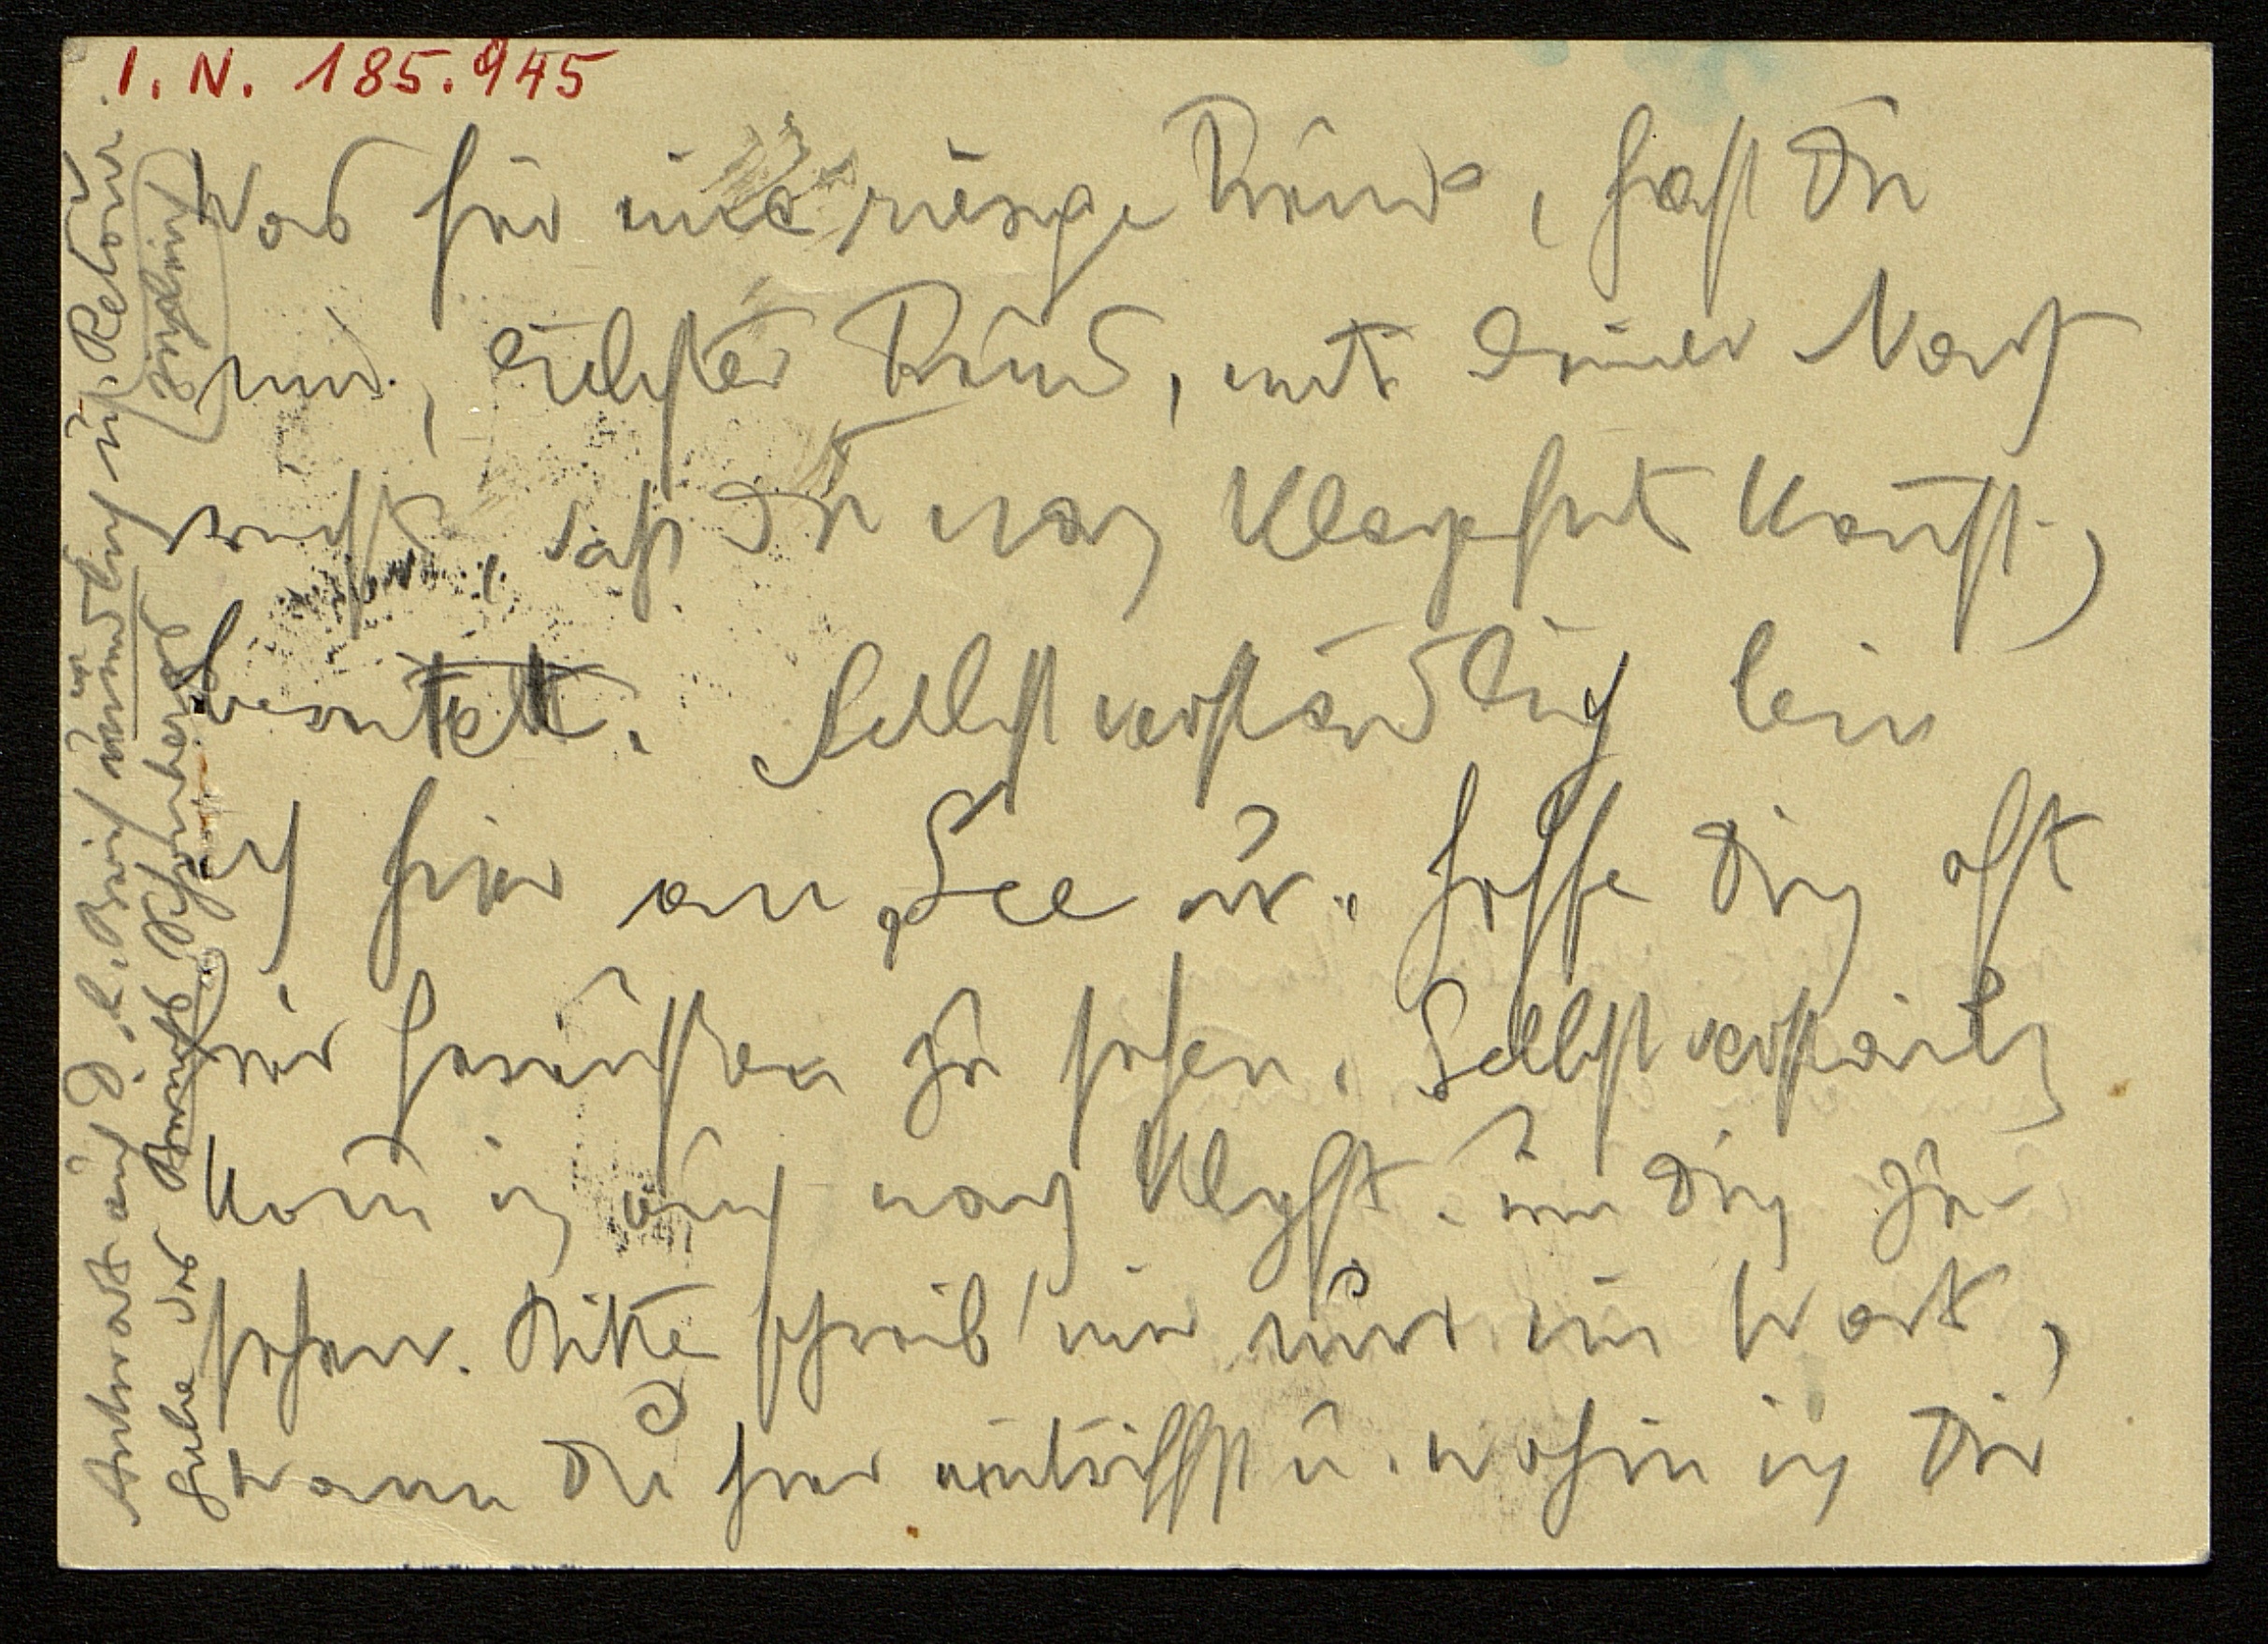 I. N. 185.945
Was für eine riesige Freude, hast Du
mir, liebster Freund, mit Deiner Nach
richt, daß Du nach Klagenfurt kommst,
bereitet. Selbstverständlich bin
ich hier am See u. hoffe Dich oft
hier draußen zu sehen. Selbstverständlich
komm ich auch nach Klgft. um Dich zu
sehen. Bitte schreib' mir nur ein Wort,
wann Du hier eintriffst u. wohin ich Dir
Antwort auf D. l. Brief mündlich
gebe das